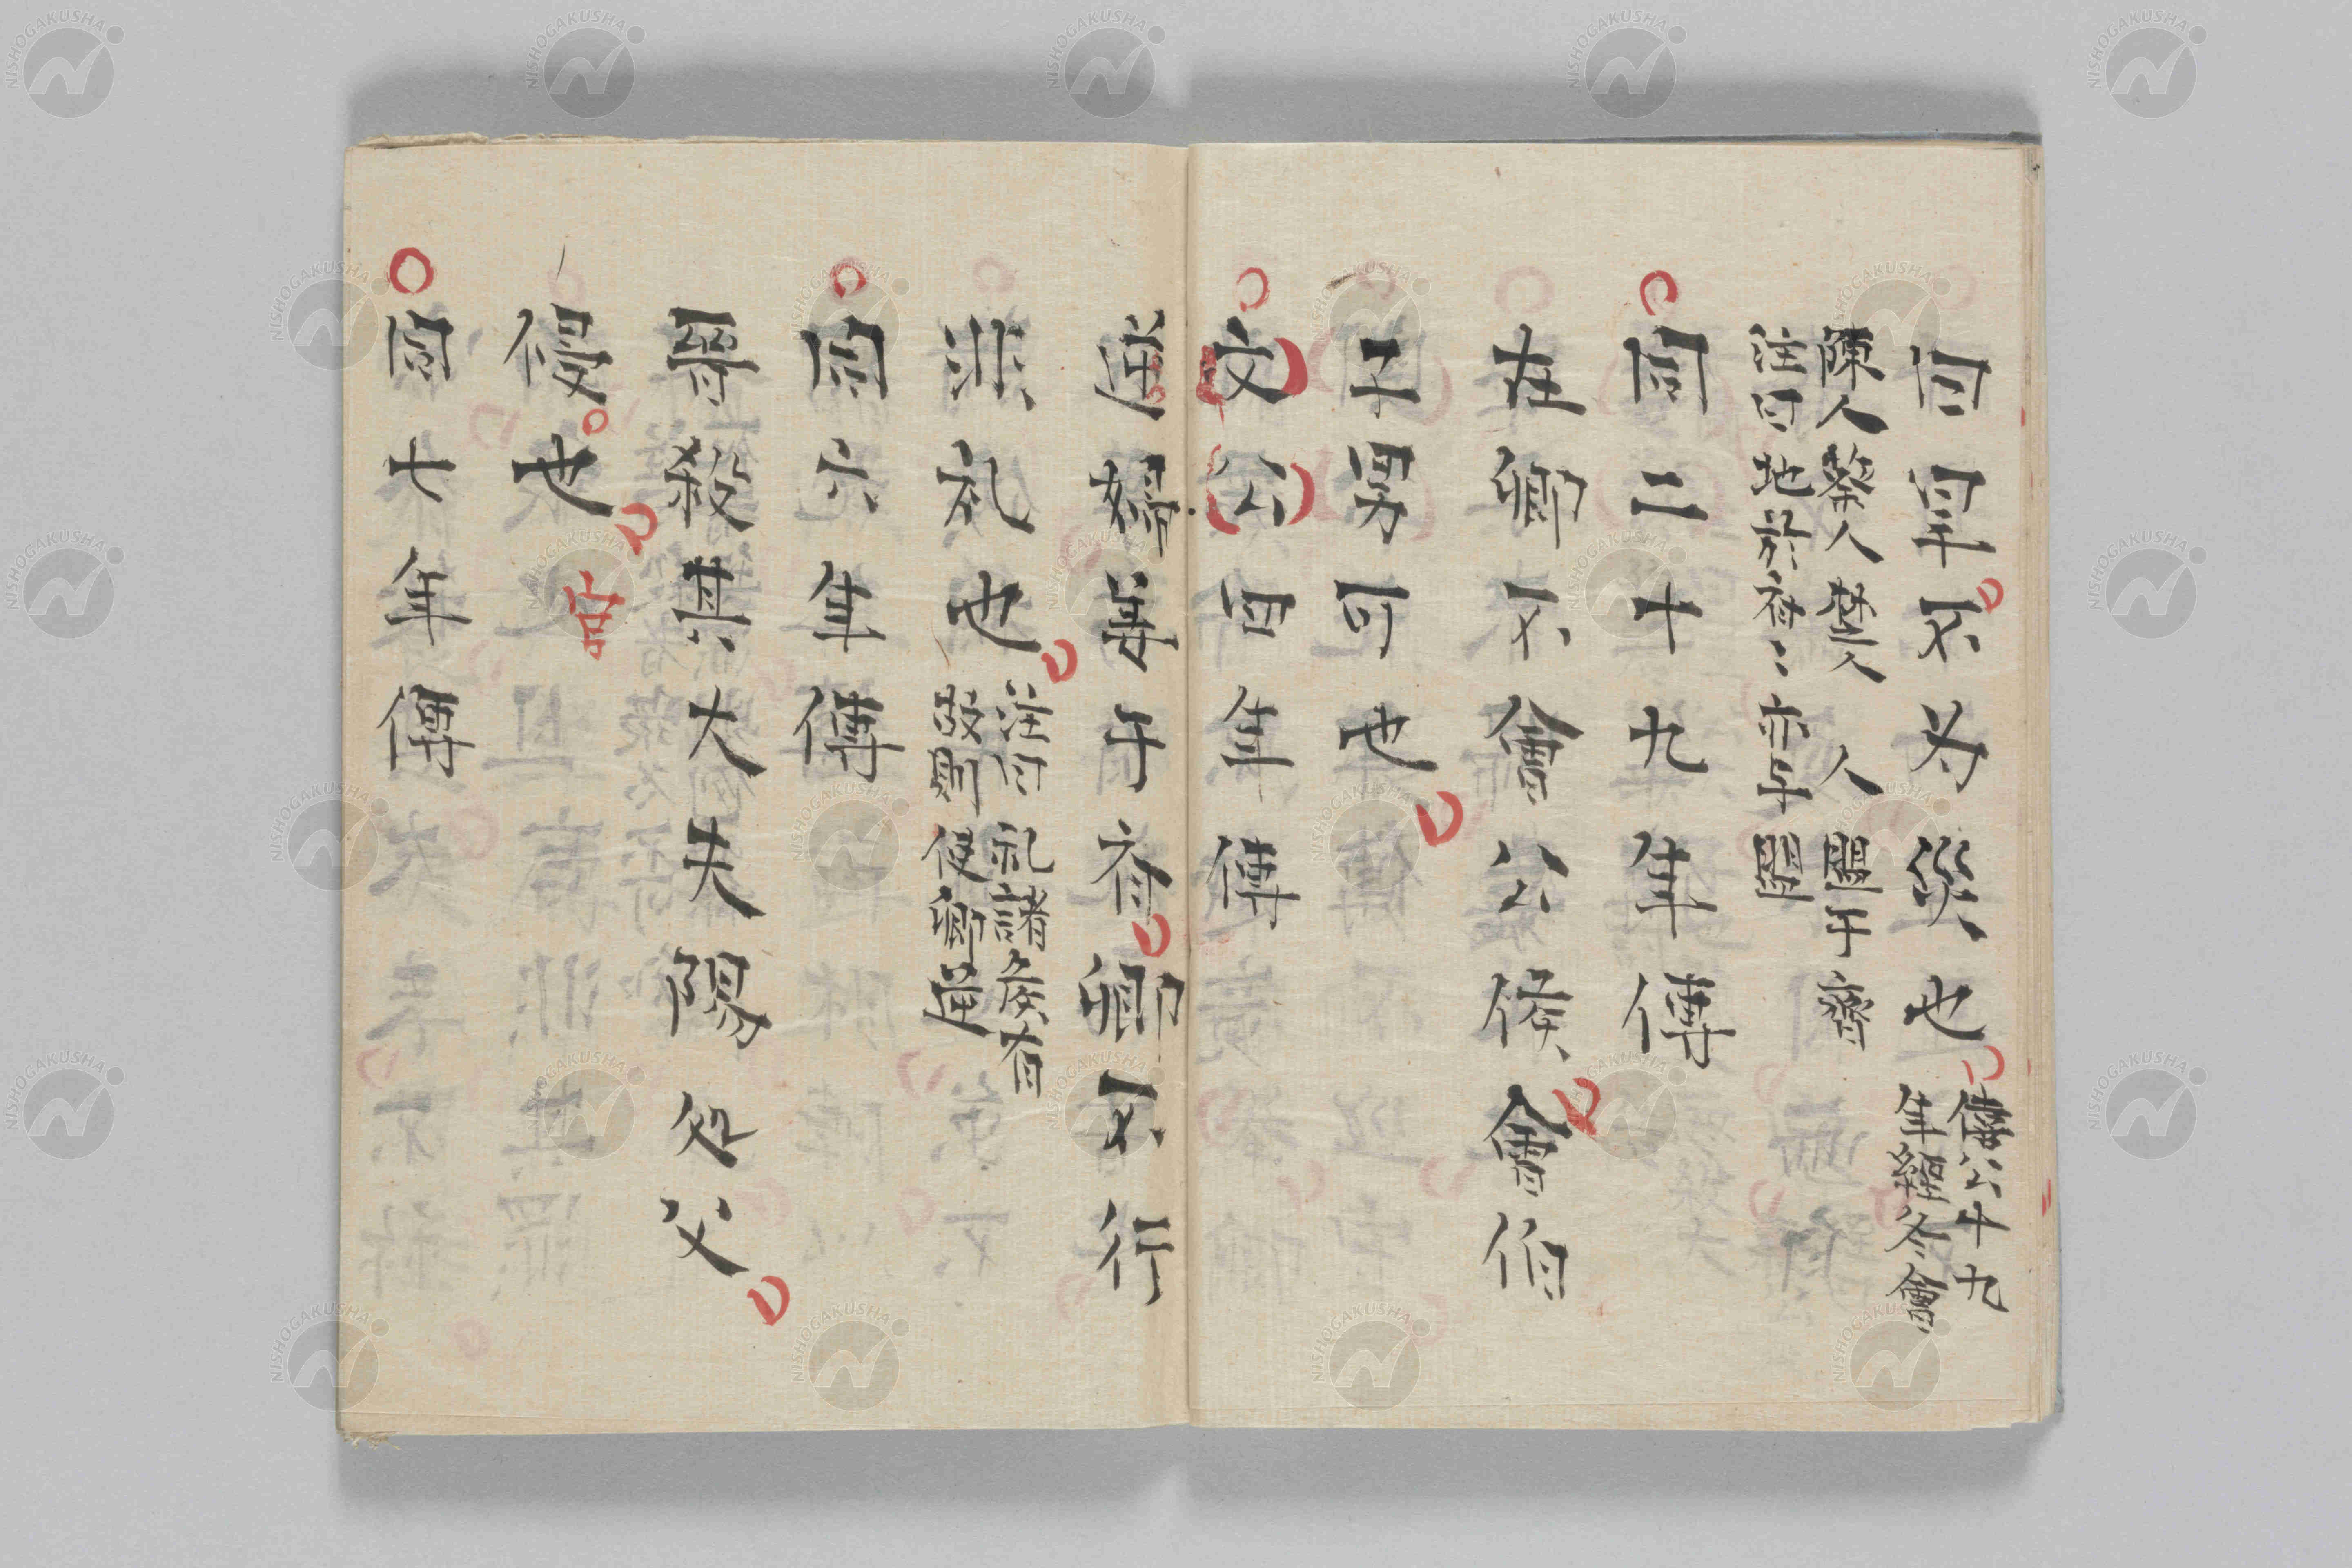 曰旱不为災也
僖公十九
年經冬會
陳人蔡人楚人　人盟于齊
注曰地於齊〻亦与盟
同二十九年傳
在卿不會公侯會伯
子男可也
文公四年傳
逆婦姜于齊卿不行
非礼也
注曰礼諸侯有
故則使卿逆
同六年傳
晉殺其大夫陽処父
侵也
官
同七年傳
NISHOGAKUSHA